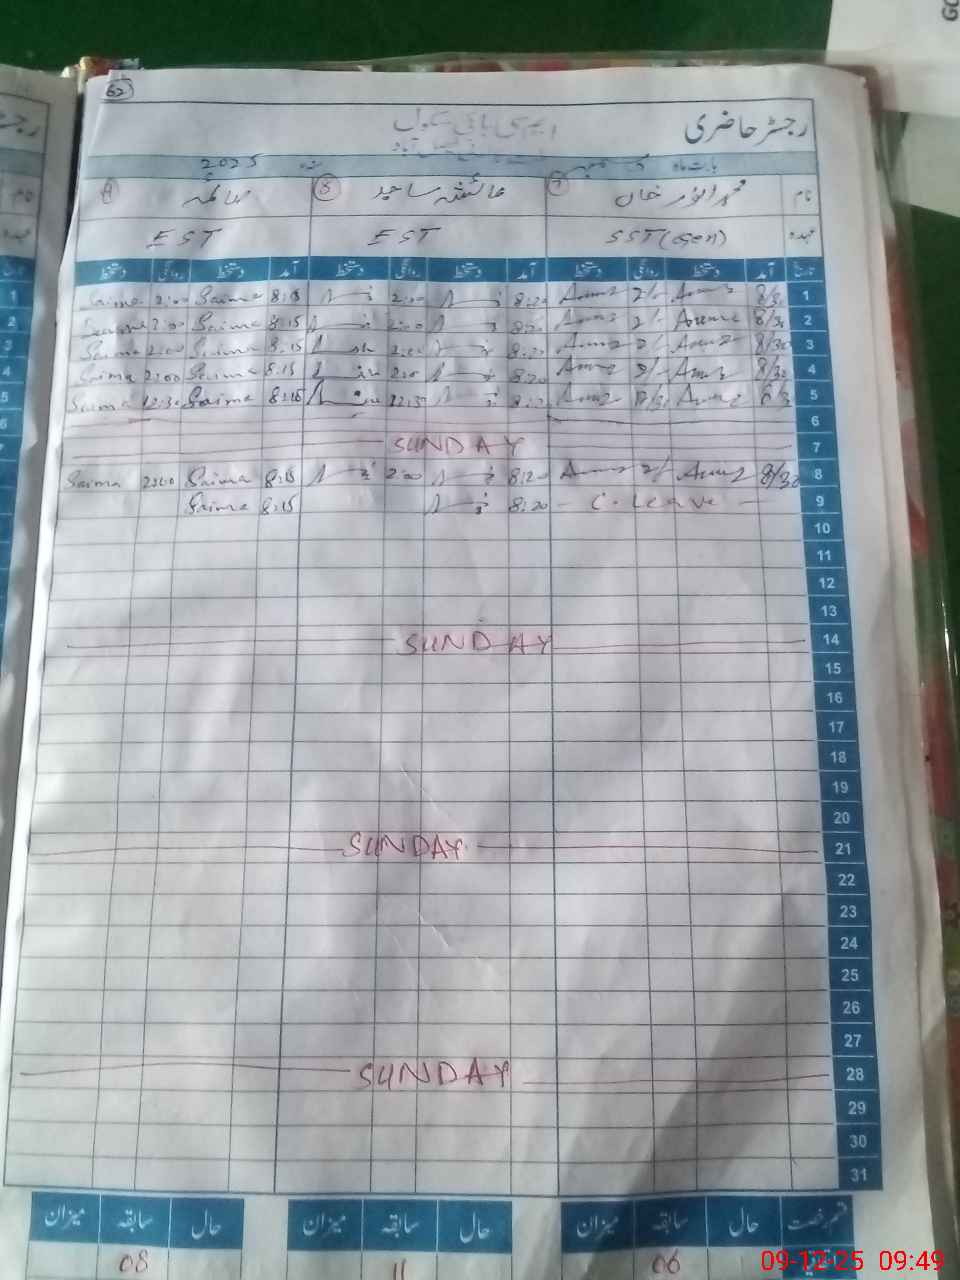 62
رجسٹر حاضری
ایم سی ہائی سکول
بابت ماہ دسمبر سنہ 2025
نام محمد انور خان 7 عائشہ ساجد 8 صائمہ
عہدہ SST (Gen) EST EST
تاریخ آمد دستخط روانگی دستخط آمد دستخط روانگی دستخط آمد دستخط روانگی دستخط
1 8/30 2/- 8:20 2:00 8:15 Saima 2:00 Saima
2 8/30 2/- 8:20 2:00 8:15 Saima 2:00
3 8/30 2/- 8:20 2:00 8:15 Saima 2:00 Saima
4 8/30 2/- 8:20 2:00 8:15 Saima 2:00 Saima
5 8/30 8:20 12:30 8:15 Saima 12:30 Saima
6
7 SUNDAY
8 8/30 2/- 8:20 2:00 8:15 Saima 2:00 Saima
9 - C. Leave - 8:20 8:15 Saima
10
11
12
13
14 SUNDAY
15
16
17
18
19
20
21 SUNDAY
22
23
24
25
26
27
28 SUNDAY
29
30
31
قسم رخصت حال سابقہ میزان حال سابقہ میزان حال سابقہ میزان
06 11 08
09-12-25 09:49